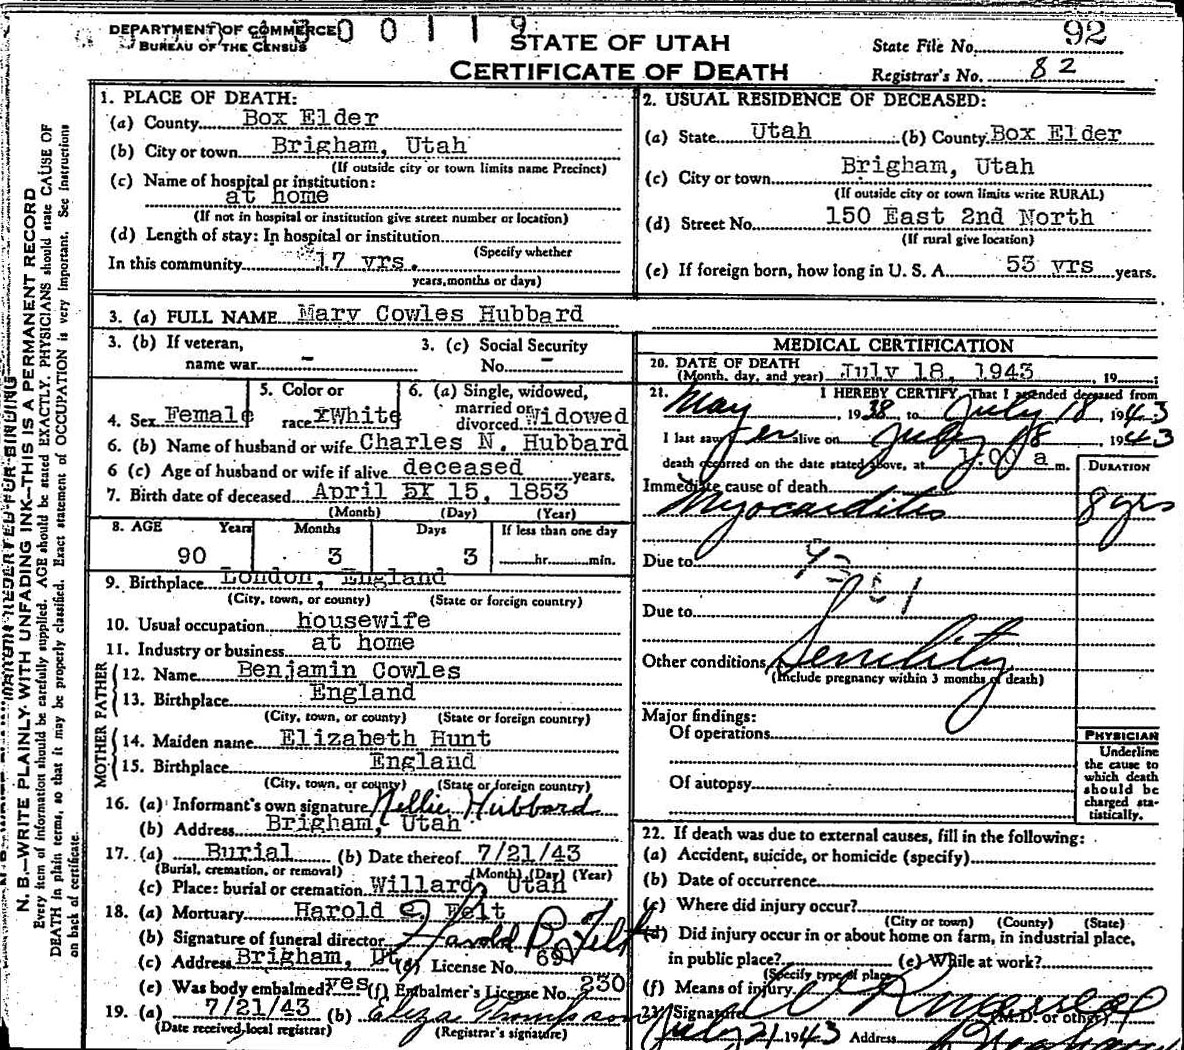 DEPARTMENT OF COMMERCE
BUREAU OF THE CENSUS
300119
STATE OF UTAH
CERTIFICATE OF DEATH
State File No. 92
Registrar's No. 82
N. B.—WRITE PLAINLY WITH UNFADING INK—THIS IS A PERMANENT RECORD
Every item of information should be carefully supplied. AGE should be stated EXACTLY. PHYSICIANS should state CAUSE OF
DEATH in plain terms, so that it may be properly classified. Exact statement of OCCUPATION is very important. See instructions
on back of certificate.
1. PLACE OF DEATH:
(a) County Box Elder
(b) City or town Brigham, Utah
(If outside city or town limits name Precinct)
(c) Name of hospital or institution:
at home
(If not in hospital or institution give street number or location)
(d) Length of stay: In hospital or institution
(Specify whether
In this community 17 yrs.
years, months or days)
2. USUAL RESIDENCE OF DECEASED:
(a) State Utah (b) County Box Elder
(c) City or town Brigham, Utah
(If outside city or town limits write RURAL)
(d) Street No. 150 East 2nd North
(If rural give location)
(e) If foreign born, how long in U. S. A. 53 yrs years.
3. (a) FULL NAME Mary Cowles Hubbard
3. (b) If veteran,
name war -
3. (c) Social Security
No. -
4. Sex Female
5. Color or
race xWhite
6. (a) Single, widowed,
married or
divorced Widowed
6. (b) Name of husband or wife Charles N. Hubbard
6 (c) Age of husband or wife if alive deceased years.
7. Birth date of deceased April 15, 1853
(Month) (Day) (Year)
8. AGE Years Months Days If less than one day
90 3 3 hr. min.
9. Birthplace London, England
(City, town, or county) (State or foreign country)
10. Usual occupation housewife
11. Industry or business at home
FATHER
12. Name Benjamin Cowles
13. Birthplace England
(City, town, or county) (State or foreign country)
MOTHER
14. Maiden name Elizabeth Hunt
15. Birthplace England
(City, town, or county) (State or foreign country)
16. (a) Informant's own signature Nellie Hubbard
(b) Address Brigham, Utah
17. (a) Burial (b) Date thereof 7/21/43
(Burial, cremation, or removal) (Month) (Day) (Year)
(c) Place: burial or cremation Willard, Utah
18. (a) Mortuary Harold Felt
(b) Signature of funeral director Harold B Felt
(c) Address Brigham, Ut (d) License No. 69
(e) Was body embalmed? yes (f) Embalmer's License No. 230
19. (a) 7/21/43 (b) Eliza Thompson
(Date received, local registrar) (Registrar's signature)
MEDICAL CERTIFICATION
20. DATE OF DEATH
(Month, day, and year) July 18, 1943 19
21. I HEREBY CERTIFY, That I attended deceased from
May, 1938 to July 18, 1943
I last saw her alive on July 18, 1943
death occurred on the date stated above, at 1:00 a m.
DURATION
Immediate cause of death
Myocarditis 8 yrs
Due to
Due to
Other conditions Senility
(Include pregnancy within 3 months of death)
Major findings:
Of operations
Of autopsy
PHYSICIAN
Underline
the cause to
which death
should be
charged sta-
tistically.
22. If death was due to external causes, fill in the following:
(a) Accident, suicide, or homicide (specify)
(b) Date of occurrence
(c) Where did injury occur?
(City or town) (County) (State)
(d) Did injury occur in or about home on farm, in industrial place,
in public place? (e) While at work?
(Specify type of place)
(f) Means of injury
23. Signature
(M.D. or other)
July 21 1943 Address